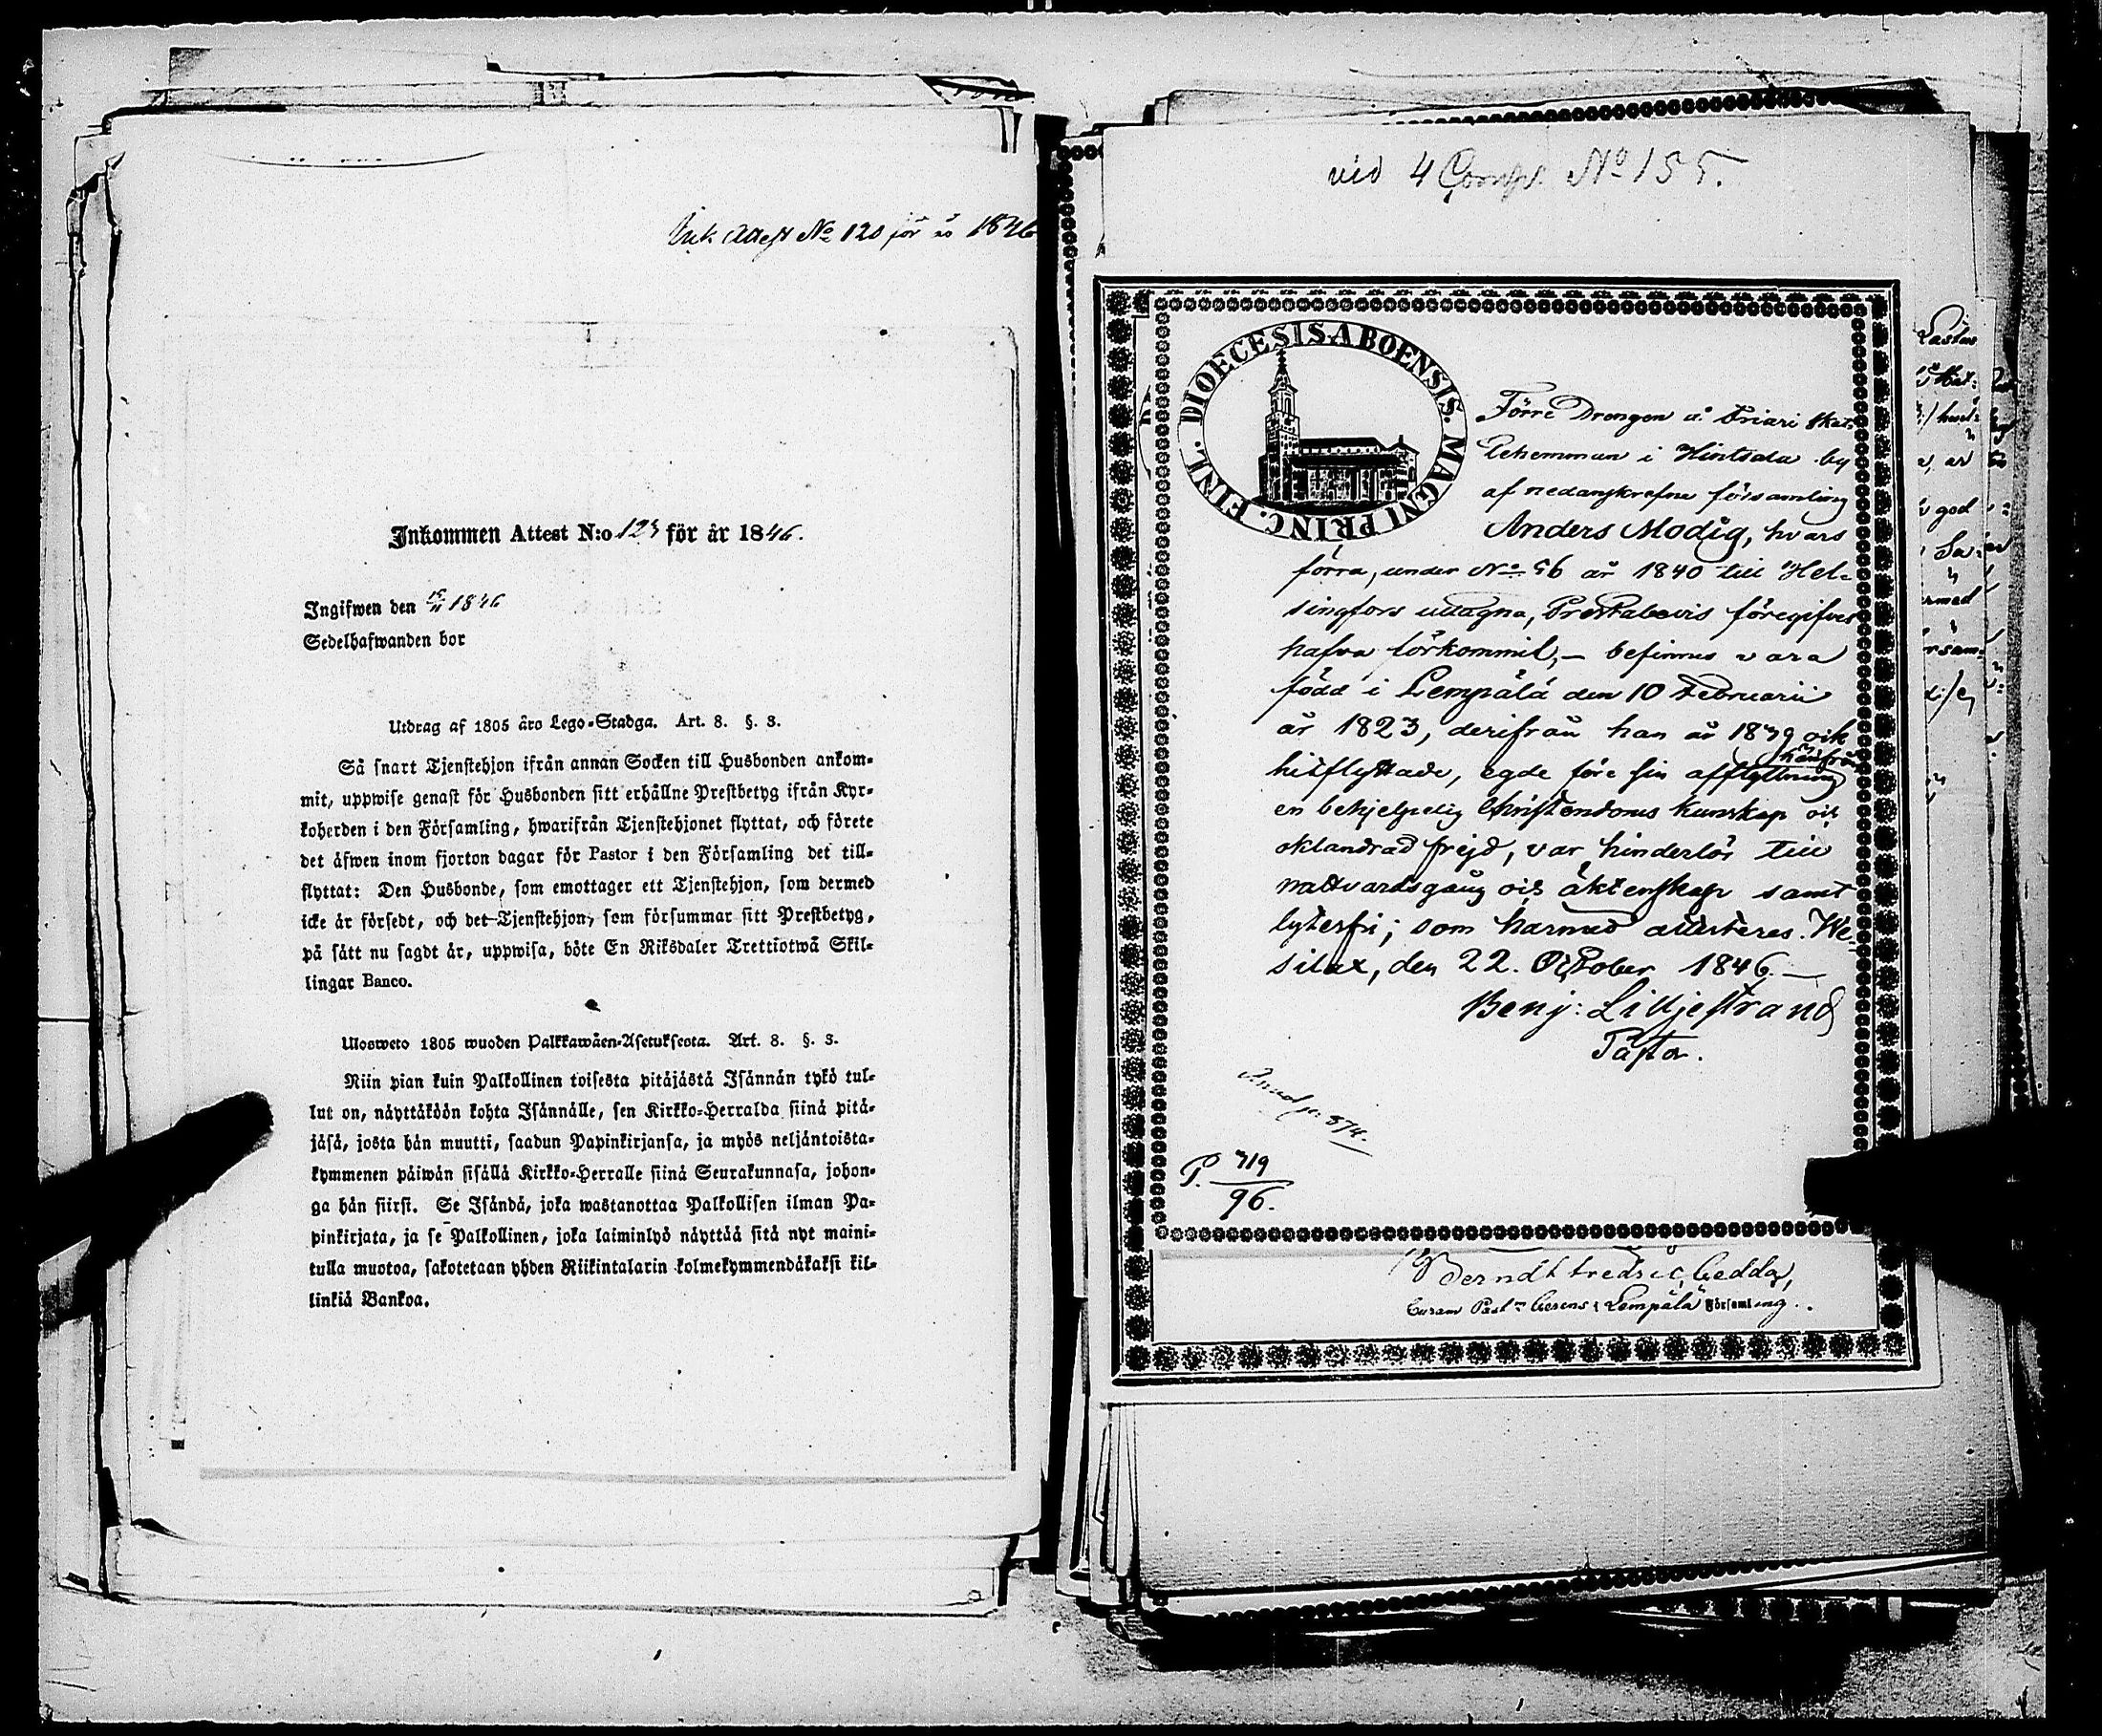 Ink. Attest No 120 för år 1846
Inkommen Attest N:o 123 för år 1846.
Ingifwen den 15/11 1846
Sedelhafwanden bor
Utdrag af 1805 års Lego-Stadga. Art. 8. §. 3.
Så snart Tjenstehjon ifrån annan Socken till Husbonden ankom-
mit, uppwise genast för Husbonden sitt erhållne Prestbetyg ifrån Kyr-
koherden i den Församling, hwarifrån Tjenstehjonet flyttat, och förete
det äfwen inom fjorton dagar för Pastor i den Församling det till-
flyttat: Den Husbonde, som emottager ett Tjenstehjon, som dermed
icke är försedt, och det Tjenstehjon, som försummar sitt Prestbetyg,
på sätt nu sagdt är, uppwisa, böte En Riksdaler Trettiotwå Skil-
lingar Banco.
Ulosweto 1805 wuoden Palkkawäen-Asetuksesta. Art. 8. §. 3.
Niin pian kuin Palkollinen toisesta pitäjästä Isännän tykö tul-
lut on, näyttäköön kohta Isännälle, sen Kirkko-Herralda siinä pitä-
jäsä, josta hän muutti, saadun Papinkirjansa, ja myös neljäntoista-
kymmenen päiwän sisällä Kirkko-Herralle siinä Seurakunnasa, johon-
ga hän siirsi. Se Isändä, joka wastanottaa Palkollisen ilman Pa-
pinkirjata, ja se Palkollinen, joka laiminlyö näyttää sitä nyt maini-
tulla muotoa, sakotetaan yhden Riikintalarin kolmekymmendäkaksi kil-
linkiä Bankoa.
vid 4 Comp. No 155.
DIOECESIS ABOENSIS. MAGNI PRINC. FINL.
Förre Drengen å Friari Skat-
tehemman i Hintsala by
af nedanskrefne församling
Anders Modig, hvars
förra, under No 56 år 1840 till Hel-
singfors uttagna, Prestabevis föregifves
hafva förkommit, – befinnes vara
född i Lempälä den 10 Februarii
år 1823, derifrån han år 1839 och
hitflyttade, egde före sin afflyttning härifrån
en behjelpelig Christendoms kunskap och
oklandrad frejd, var hinderlös till
nattvardsgång och äktenskap samt
lyterfri; som härmed attesteres. We-
silax, den 22. October 1846. –
Benj: Lilljestrand
Pastor.
p. 874.
P. 719
96.
Berndt Fredric Gedda,
Curam Past. Gerens i Lempälä Församling.